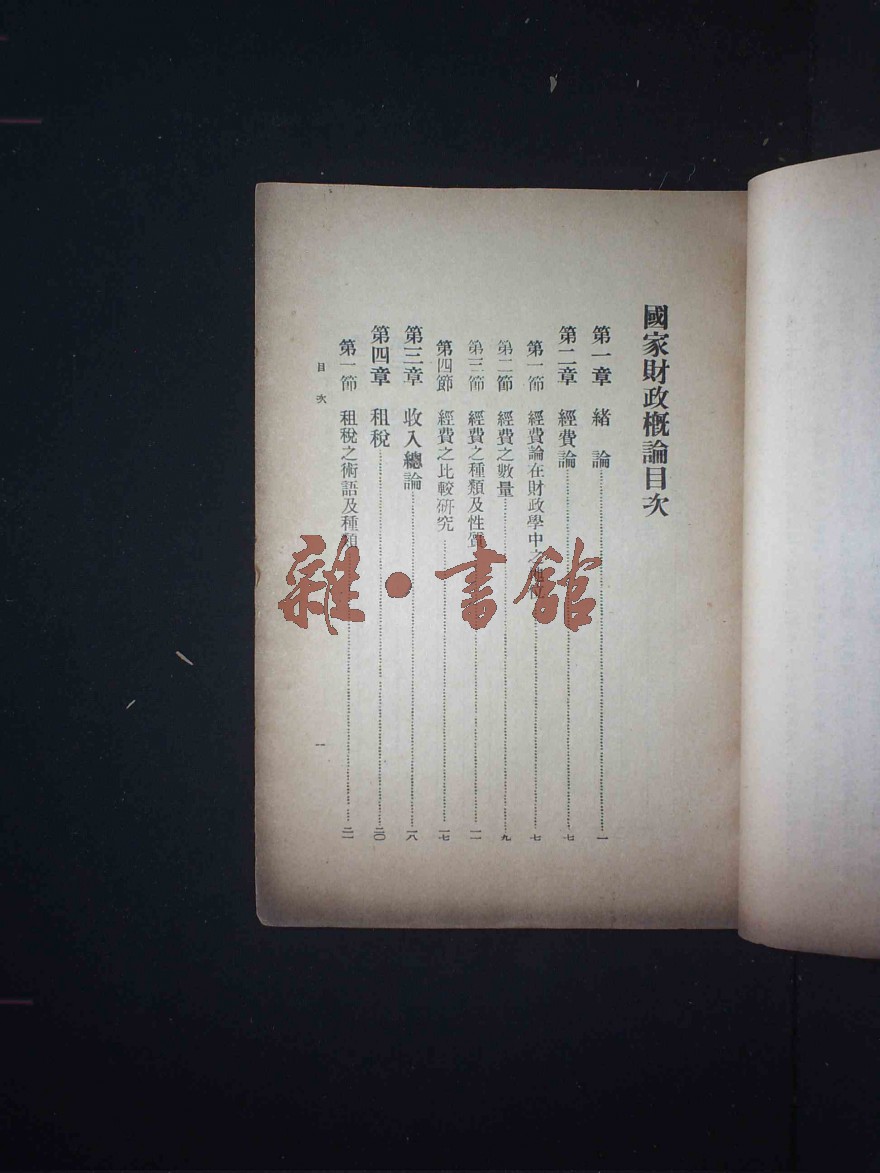 國家財政概論目次
第一章 緒論……一
第二章 經費論……七
第一節 經費論在財政學中之地位……七
第二節 經費之數量……九
第三節 經費之種類及性質……一一
第四節 經費之比較研究……一七
第三章 收入總論……一八
第四章 租稅……二〇
第一節 租稅之術語及種類……二一
目次 一
雜·書館